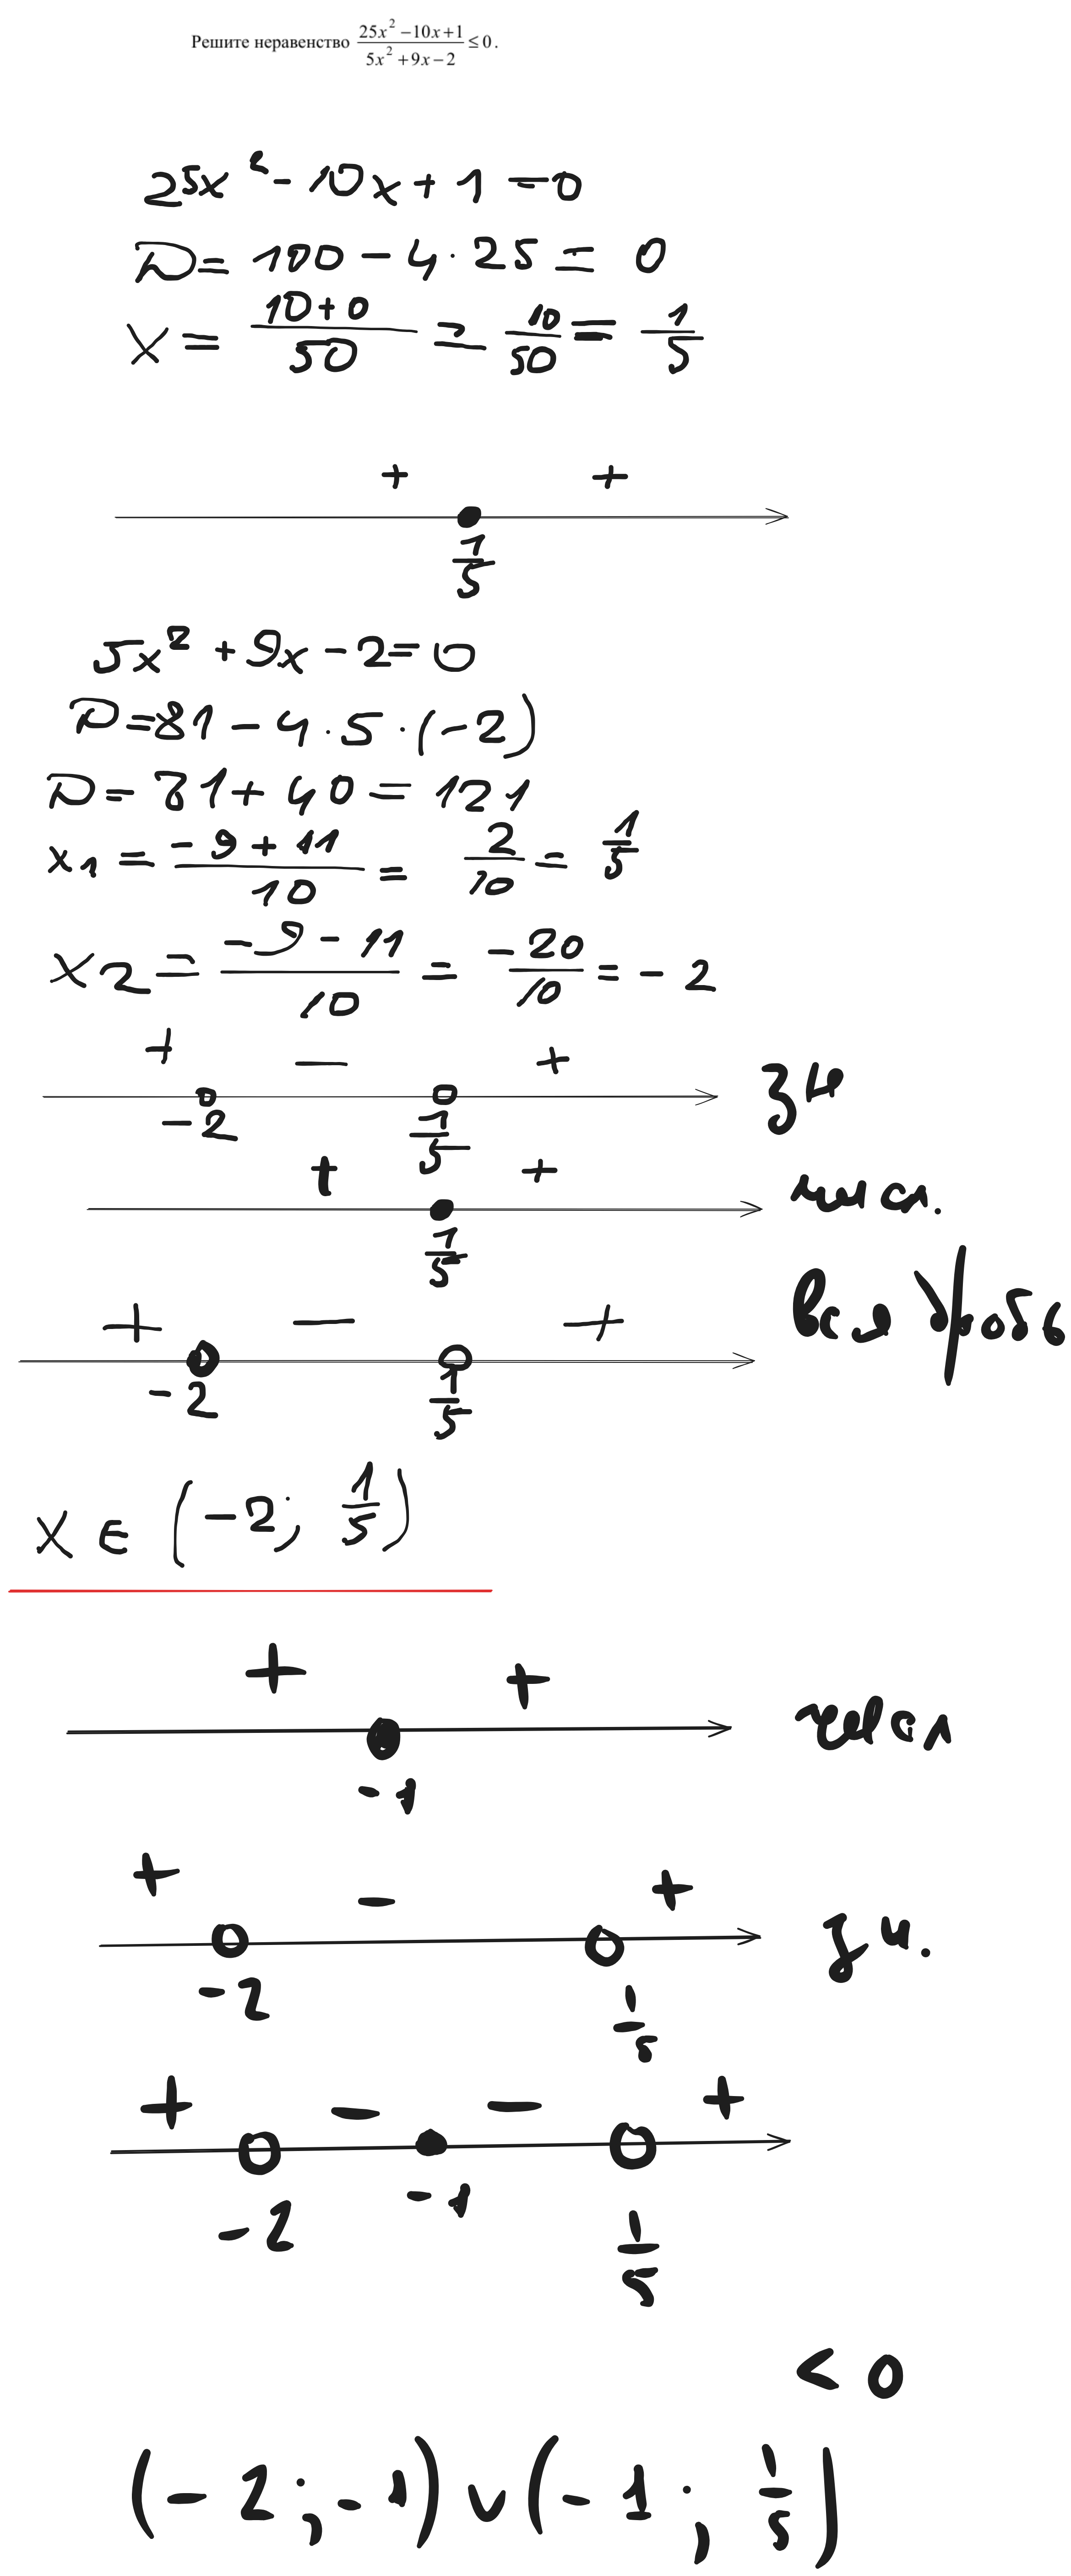 Решите неравенство (25x² −10x+1)/(5x² +9x−2) ≤ 0.
25x² - 10x + 1 = 0
D = 100 - 4 · 25 = 0
x = (10+0)/50 = 10/50 = 1/5
+ +
1/5
5x² + 9x - 2 = 0
D = 81 - 4 · 5 · (-2)
D = 81 + 40 = 121
x1 = (-9+11)/10 = 2/10 = 1/5
x2 = (-9-11)/10 = -20/10 = -2
+ − +
-2 1/5 зн
+ + числ.
1/5
+ − + вся дробь
-2 1/5
x ∈ (-2; 1/5)
+ + числ
-1
+ − + зн.
-2 1/5
+ − − +
-2 -1 1/5
< 0
(-2; -1) ∪ (-1; 1/5)